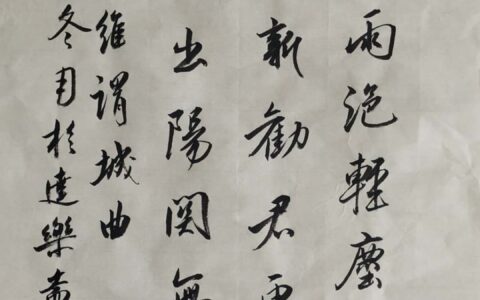 雨浥輕塵
新勸君更
出陽関無
維謂城曲
冬於達樂